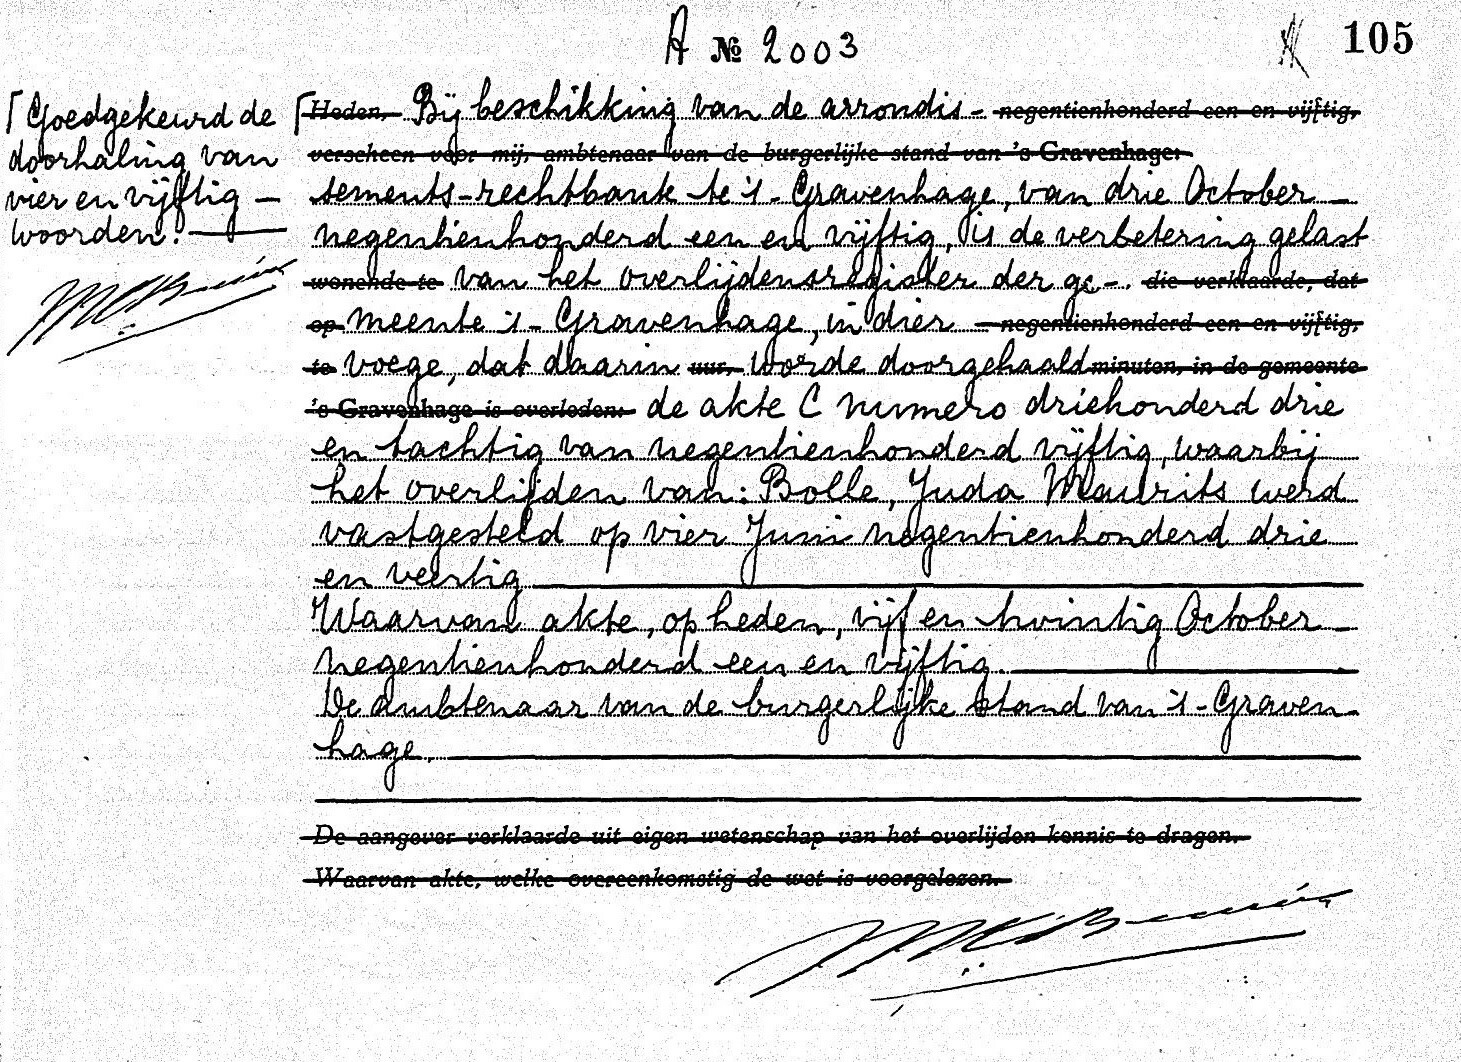 A № 2003
105
Goedgekeurd de
doorhaling van
vier en vijftig –
woorden.
Heden, Bij beschikking van de arrondis- negentienhonderd een en vijftig,
verscheen voor mij, ambtenaar van de burgerlijke stand van 's-Gravenhage:
sements-rechtbank te 's-Gravenhage, van drie October –
negentienhonderd een en vijftig, is de verbetering gelast
wonende te van het overlijdensregister der ge-. die verklaarde, dat
op meente 's-Gravenhage, in dier negentienhonderd een en vijftig,
te voege, dat daarin uur, worde doorgehaald minuten, in de gemeente
's-Gravenhage is overleden: de akte C numero driehonderd drie
en tachtig van negentienhonderd vijftig, waarbij
het overlijden van: Bolle, Juda Maurits werd
vastgesteld op vier Juni negentienhonderd drie
en veertig
Waarvan akte, op heden, vijf en twintig October –
negentienhonderd een en vijftig.
De ambtenaar van de burgerlijke stand van 's-Graven-
hage.
De aangever verklaarde uit eigen wetenschap van het overlijden kennis te dragen.
Waarvan akte, welke overeenkomstig de wet is voorgelezen.